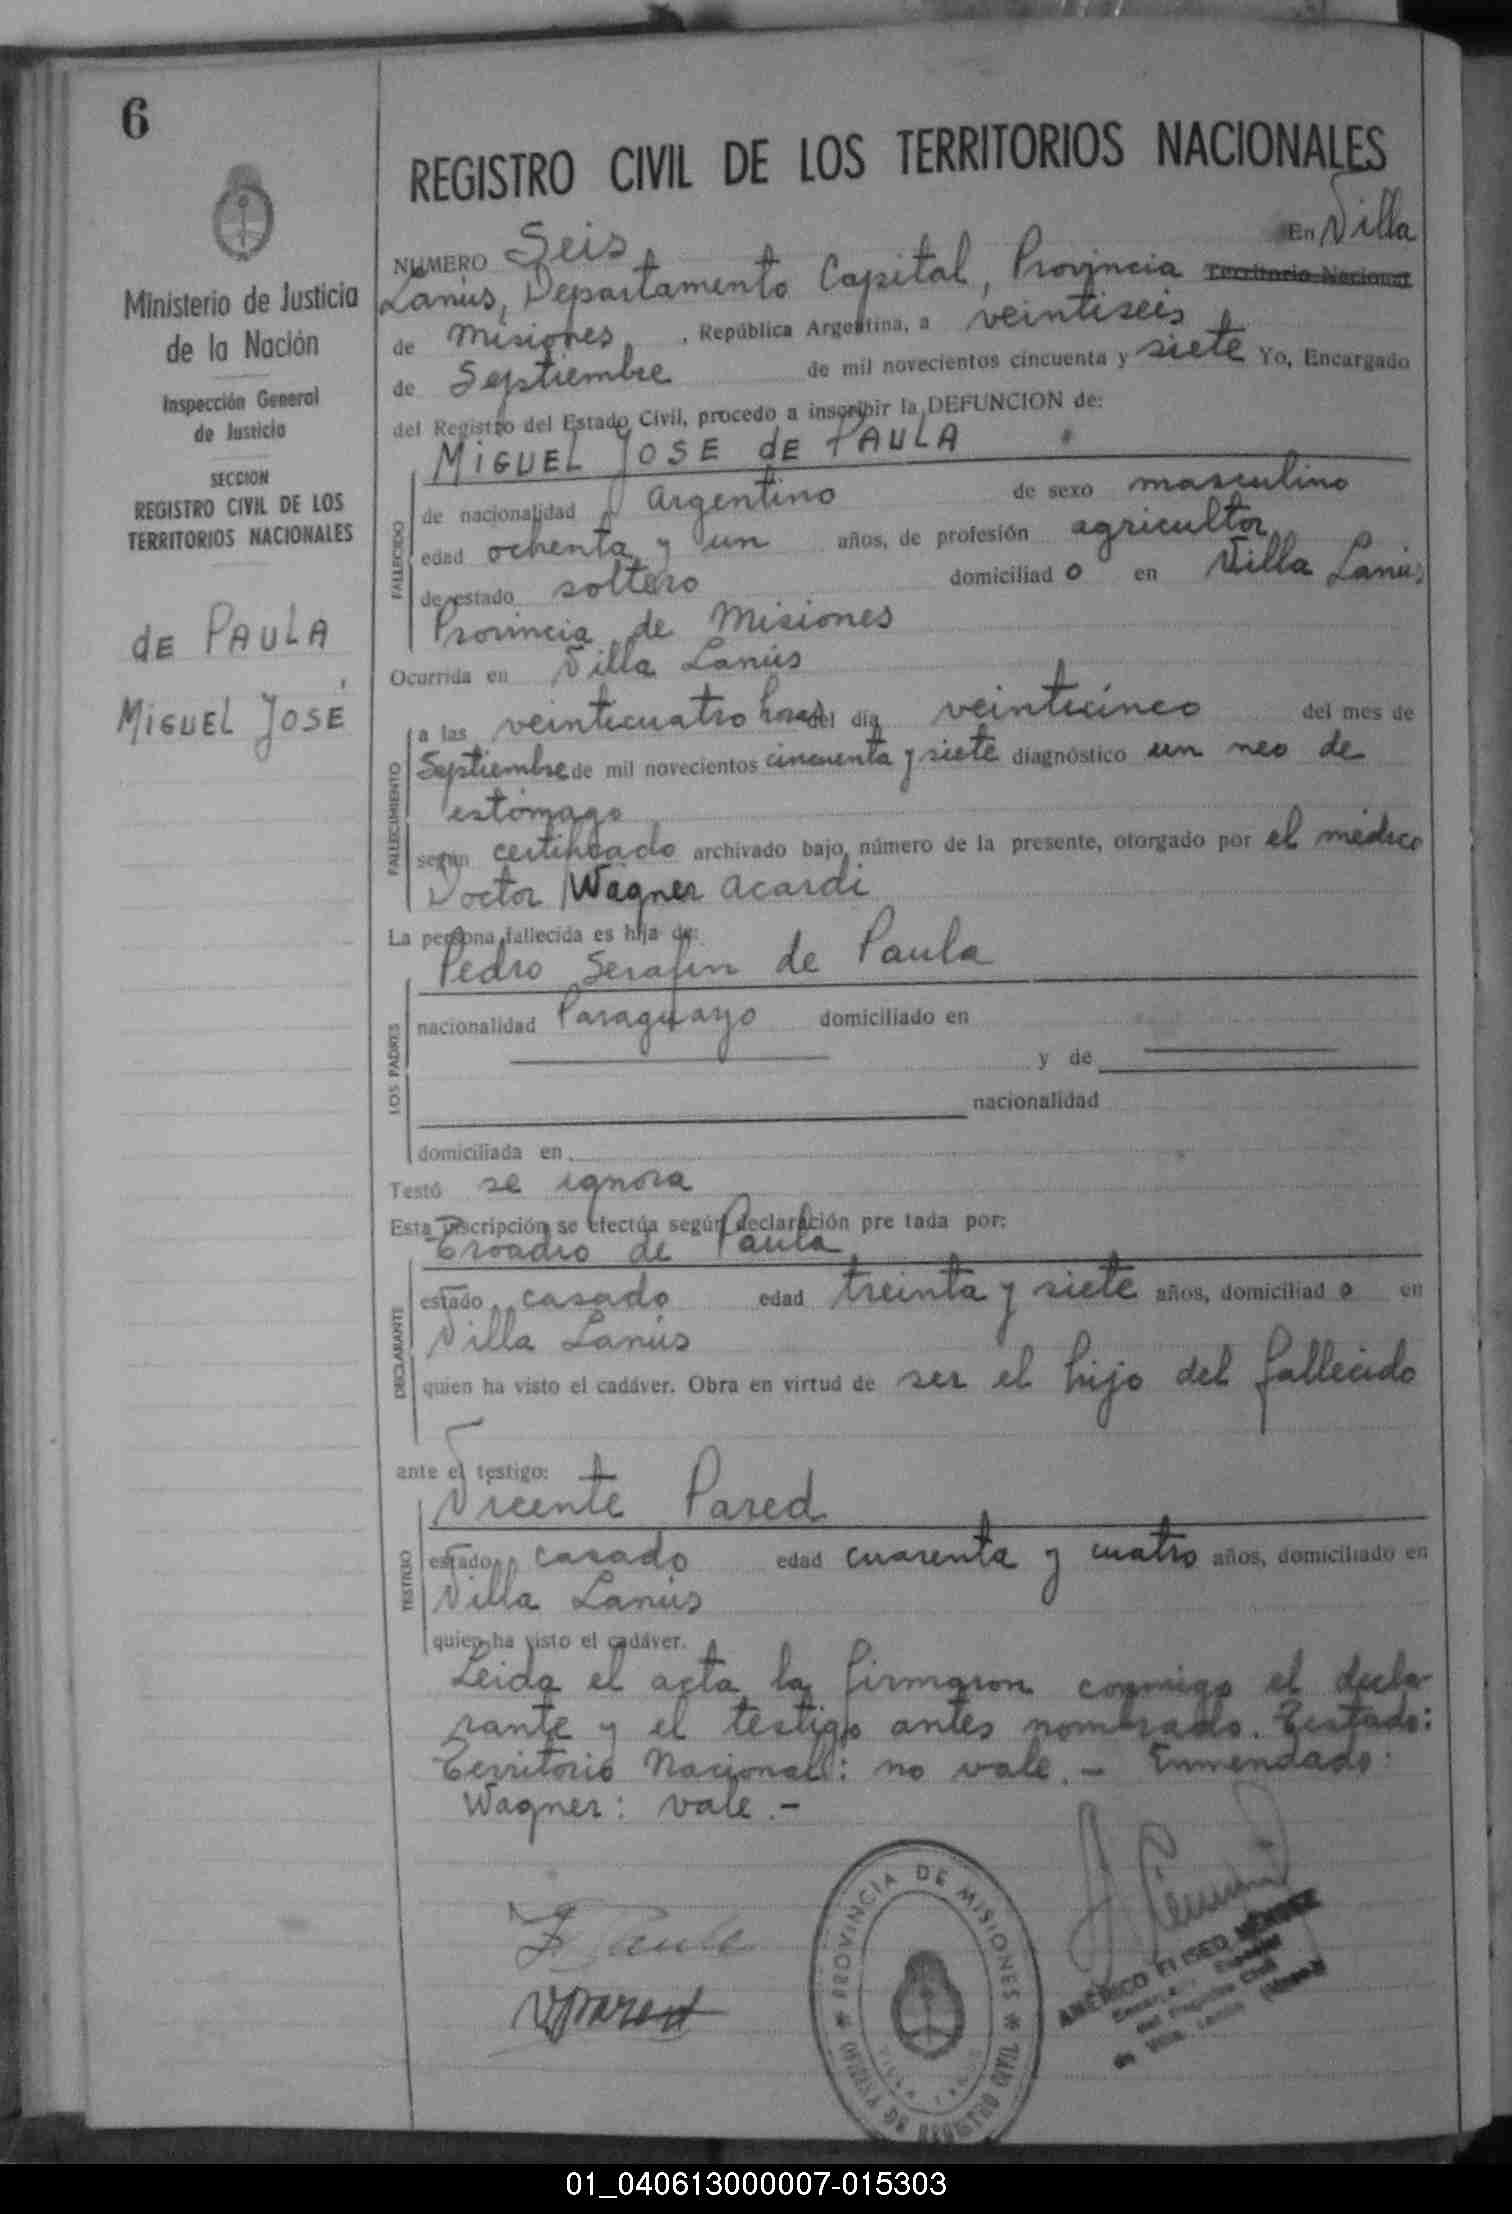 6
REGISTRO CIVIL DE LOS TERRITORIOS NACIONALES
Ministerio de Justicia
de la Nación
Inspección General
de Justicia
SECCION
REGISTRO CIVIL DE LOS
TERRITORIOS NACIONALES
dE PAULA
MIGUEL JOSÉ
NUMERO Seis En Villa
Lanús, Departamento Capital, Provincia Territorio Nacional
de Misiones, República Argentina, a veintiseis
de Septiembre de mil novecientos cincuenta y siete Yo, Encargado
del Registro del Estado Civil, procedo a inscribir la DEFUNCION de:
MIGUEL JOSE dE PAULA
FALLECIDO
de nacionalidad Argentino de sexo masculino
edad ochenta y un años, de profesión agricultor
de estado soltero domiciliad o en Villa Lanús
Provincia de Misiones
Ocurrida en Villa Lanús
FALLECIMIENTO
a las veinticuatro horas del día veinticinco del mes de
Septiembre de mil novecientos cincuenta y siete diagnóstico un neo de
estómago
según certificado archivado bajo número de la presente, otorgado por el médico
Doctor Wagner Acardi
La persona fallecida es hija de:
LOS PADRES
Pedro Serafin de Paula
nacionalidad Paraguayo domiciliado en
y de
nacionalidad
domiciliada en
Testó se ignora
Esta inscripción se efectúa según declaración pre tada por:
DECLARANTE
Eroadio de Paula
estado casado edad treinta y siete años, domiciliad o en
Villa Lanús
quien ha visto el cadáver. Obra en virtud de ser el hijo del fallecido
ante el testigo:
TESTIGO
Vicente Pared
estado casado edad cuarenta y cuatro años, domiciliado en
Villa Lanús
quien ha visto el cadáver.
Leida el acta la firmaron conmigo el decla-
rante y el testigo antes nombrado. Testado:
Territorio Nacional: no vale. - Enmendado:
Wagner: vale. -
E Paula
V Pared
PROVINCIA DE MISIONES
OFICINA DE REGISTRO CIVIL
VILLA LANUS
AMERICO ELISEO MENDEZ
del Registro Civil
de Villa Lanús
01_040613000007-015303